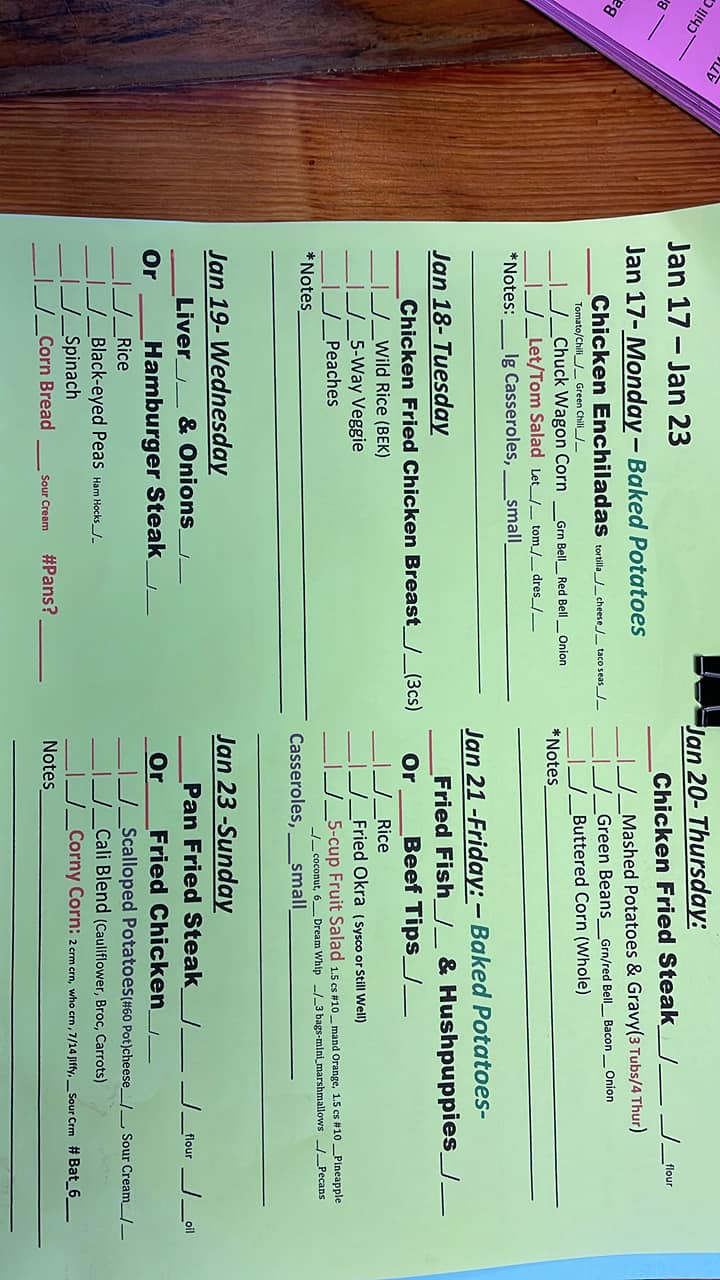 Jan 17 – Jan 23
Jan 17- Monday – Baked Potatoes
___Chicken Enchiladas tortilla_/__ cheese_/__ taco seas_/__
Tomato/Chili_/__ Green Chili_/__
__|_/_Chuck Wagon Corn __Grn Bell__ Red Bell __ Onion
__|_/_Let/Tom Salad Let_/__ tom_/__ dres_/__
*Notes: ___ lg Casseroles, ___ small
Jan 18- Tuesday
___Chicken Fried Chicken Breast_/_(3cs)
__|_/_Wild Rice (BEK)
__|_/_5-Way Veggie
__|_/_Peaches
*Notes
Jan 19- Wednesday
___Liver_/__ & Onions_/__
Or ___Hamburger Steak_/__
__|_/_Rice
__|_/_Black-eyed Peas Ham Hocks_/_
__|_/_Spinach
__|_/_Corn Bread ___ Sour Cream #Pans?____
Jan 20- Thursday:
___Chicken Fried Steak_/__ _/__flour
__|_/_Mashed Potatoes & Gravy(3 Tubs/4 Thur)
__|_/_Green Beans__ Grn/red Bell__ Bacon __ Onion
__|_/_Buttered Corn (Whole)
*Notes
Jan 21 -Friday: – Baked Potatoes-
___Fried Fish_/_ & Hushpuppies_/__
Or ___Beef Tips_/__
__|_/_Rice
__|_/_Fried Okra (Sysco or Still Well)
__|_/_5-cup Fruit Salad 1.5 cs #10 __ mand Orange, 1.5 cs #10 __Pineapple
_/__ coconut, 6__ Dream Whip _/_3 bags-mini_marshmallows _/__Pecans
Casseroles, ___small
Jan 23 -Sunday
___Pan Fried Steak_/__ _/__flour _/__oil
Or ___Fried Chicken_/__
__|_/_Scalloped Potatoes(#60 Pot)cheese_/_, Sour Cream_/_
__|_/_Cali Blend (Cauliflower, Broc, Carrots)
__|_/_Corny Corn: 2 crm crn, who crn, 7/14 Jiffy, __Sour Crm # Bat_6__
Notes
Chili